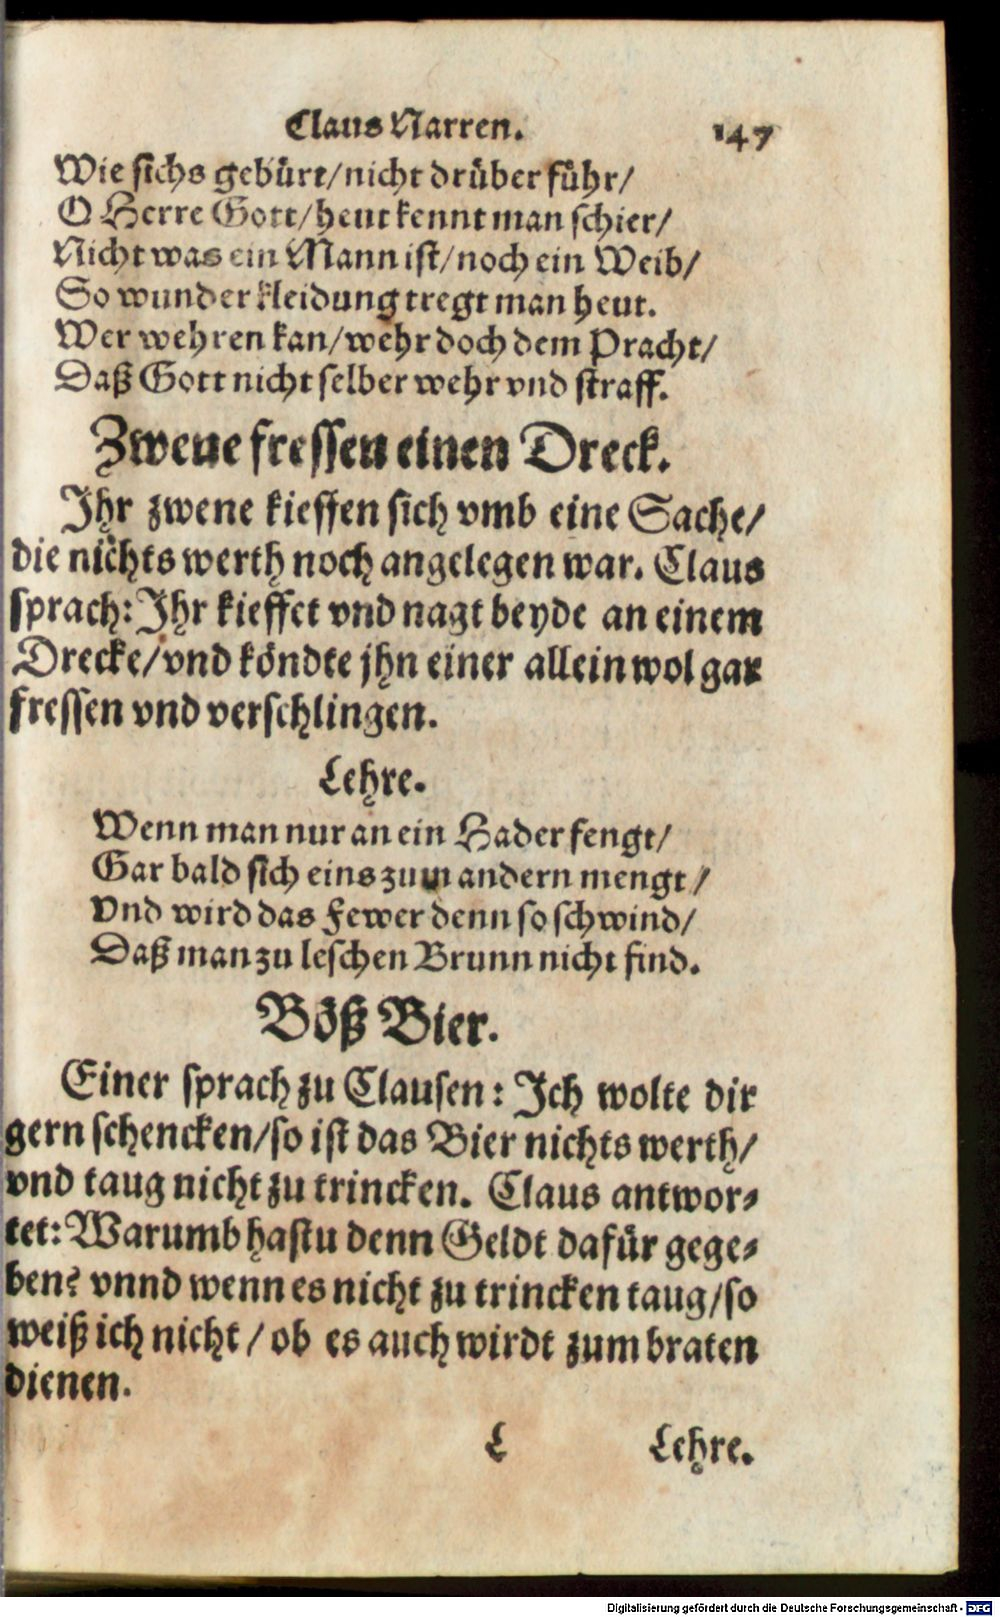 Claus Narren. 147
Wie sichs gebürt/nicht drüber führ/
O Herre Gott/heut kennt man schier/
Nicht was ein Mann ist/noch ein Weib/
So wunder kleidung tregt man heut.
Wer wehren kan/wehr doch dem Pracht/
Daß Gott nicht selber wehr vnd straff.
Zwene fressen einen Dreck.
Ihr zwene kieffen sich vmb eine Sache/
die nichts werth noch angelegen war. Claus
sprach: Ihr kieffet vnd nagt beyde an einem
Drecke/vnd köndte jhn einer allein wol gar
fressen vnd verschlingen.
Lehre.
Wenn man nur an ein Hader fengt/
Gar bald sich eins zum andern mengt/
Vnd wird das Fewer denn so schwind/
Daß man zu leschen Brunn nicht find.
Böß Bier.
Einer sprach zu Clausen: Ich wolte dir
gern schencken/so ist das Bier nichts werth/
vnd taug nicht zu trincken. Claus antwor-
tet: Warumb hastu denn Geldt dafür gege-
ben? vnnd wenn es nicht zu trincken taug/so
weiß ich nicht/ob es auch wirdt zum braten
dienen.
L Lehre.
Digitalisierung gefördert durch die Deutsche Forschungsgemeinschaft - DFG